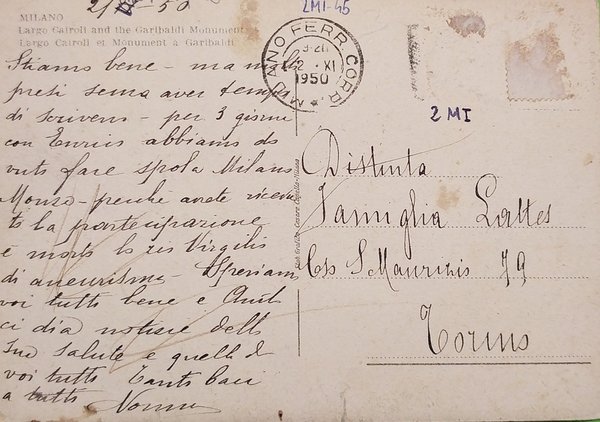 2MI-45
MILANO
Largo Cairoli and the Garibaldi Monument
Largo Cairoli et Monument a Garibaldi
MILANO FERR. CORR.
2 · XI
1950
2 MI
Stiamo bene - ma molto
presi senza aver tempo
di scrivervi - per 3 giorni
con Enrico abbiamo do
vuto fare spola Milano
Monza - perché avete ricevu
to la partecipazione
è morto lo zio Virgilio
di aneurisma - Speriamo
voi tutti bene e
ci dia notizie della
Sua salute e quelle di
voi tutti Tanti baci
a tutti Nonna
Distinta
Famiglia Lattes
Cso S. Maurizio 79
Torino